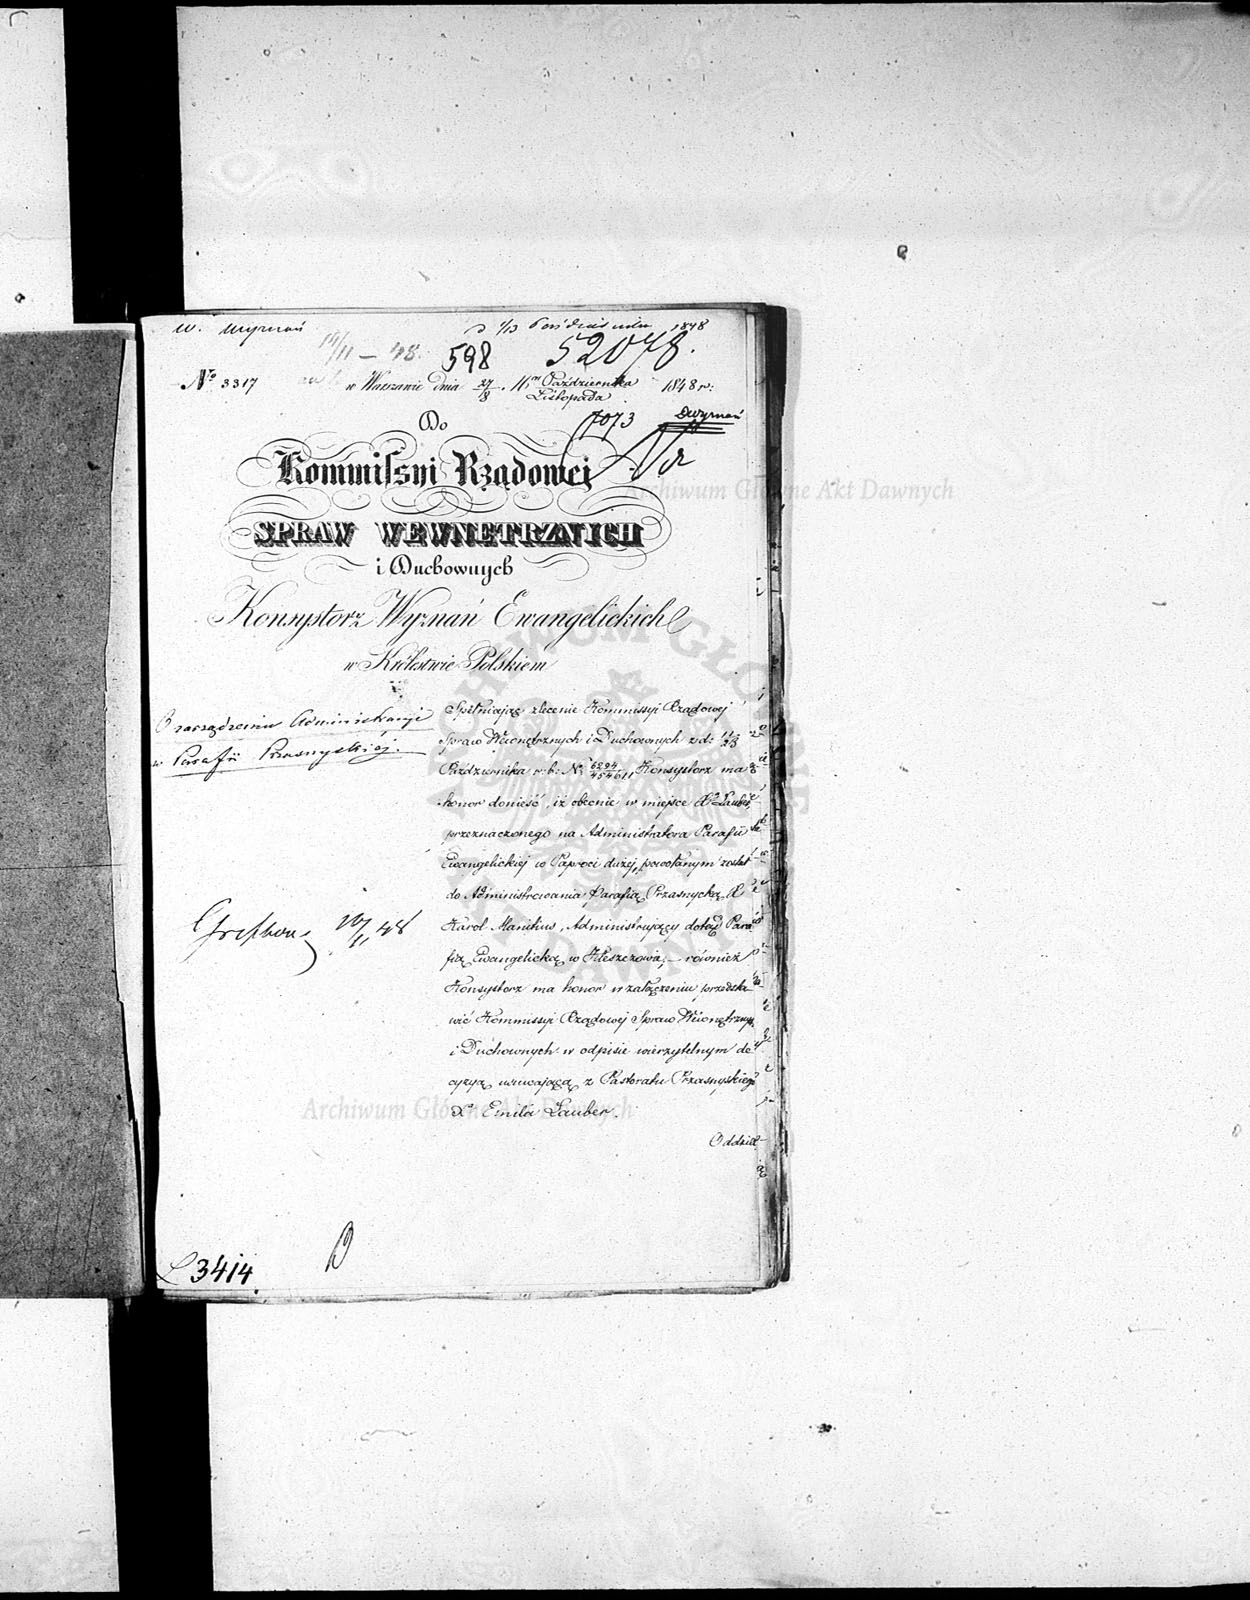 W. Wyznań
1/13 Październ 1848
598 52078.
№ 3317 w Warszawie dnia 27/8 Października Listopada 1848 r:
7073 D. Wyznań
Do
Kommissyi Rządowej
SPRAW WEWNĘTRZNYCH
i Duchownych
Konsystorz Wyznań Ewangelickich
w Królestwie Polskiem
O zarządzeniu Administracyi
w Parafii Przasnyskiéj.
Spełniając zlecenie Kommissyi Rządowej
Spraw Wewnętrznych i Duchownych z d: 11/23
Października r: b: № 6294/45461 Konsystorz ma
honor donieść, iż obecnie w miejsce X Lauber,
przeznaczonego na Administratora Parafii
Ewangelickiej w Paproci dużej, powołanym został
do Administrowania Parafią Przasnycką X
Karol Manitius, Administrujący dotąd Para
fią Ewangelicką w Kleszczowie, – również
Konsystorz ma honor w załączeniu przedsta
wić Kommissyi Rządowej Spraw Wewnętrznych
i Duchownych w odpisie wierzytelnym de
cyzyą usuwającą z Pastoratu Przasnyskiego
X Emila Lauber.
Oddział
3414
Archiwum Główne Akt Dawnych
Archiwum Główne Akt Dawnych
ARCHIWUM GŁÓWNE AKT DAWNYCH